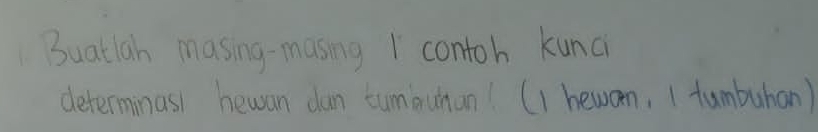 Buatlah masing-masing 1 contoh kunci
determinasi hewan dan tumbuhan! (1 hewan, 1 tumbuhan)